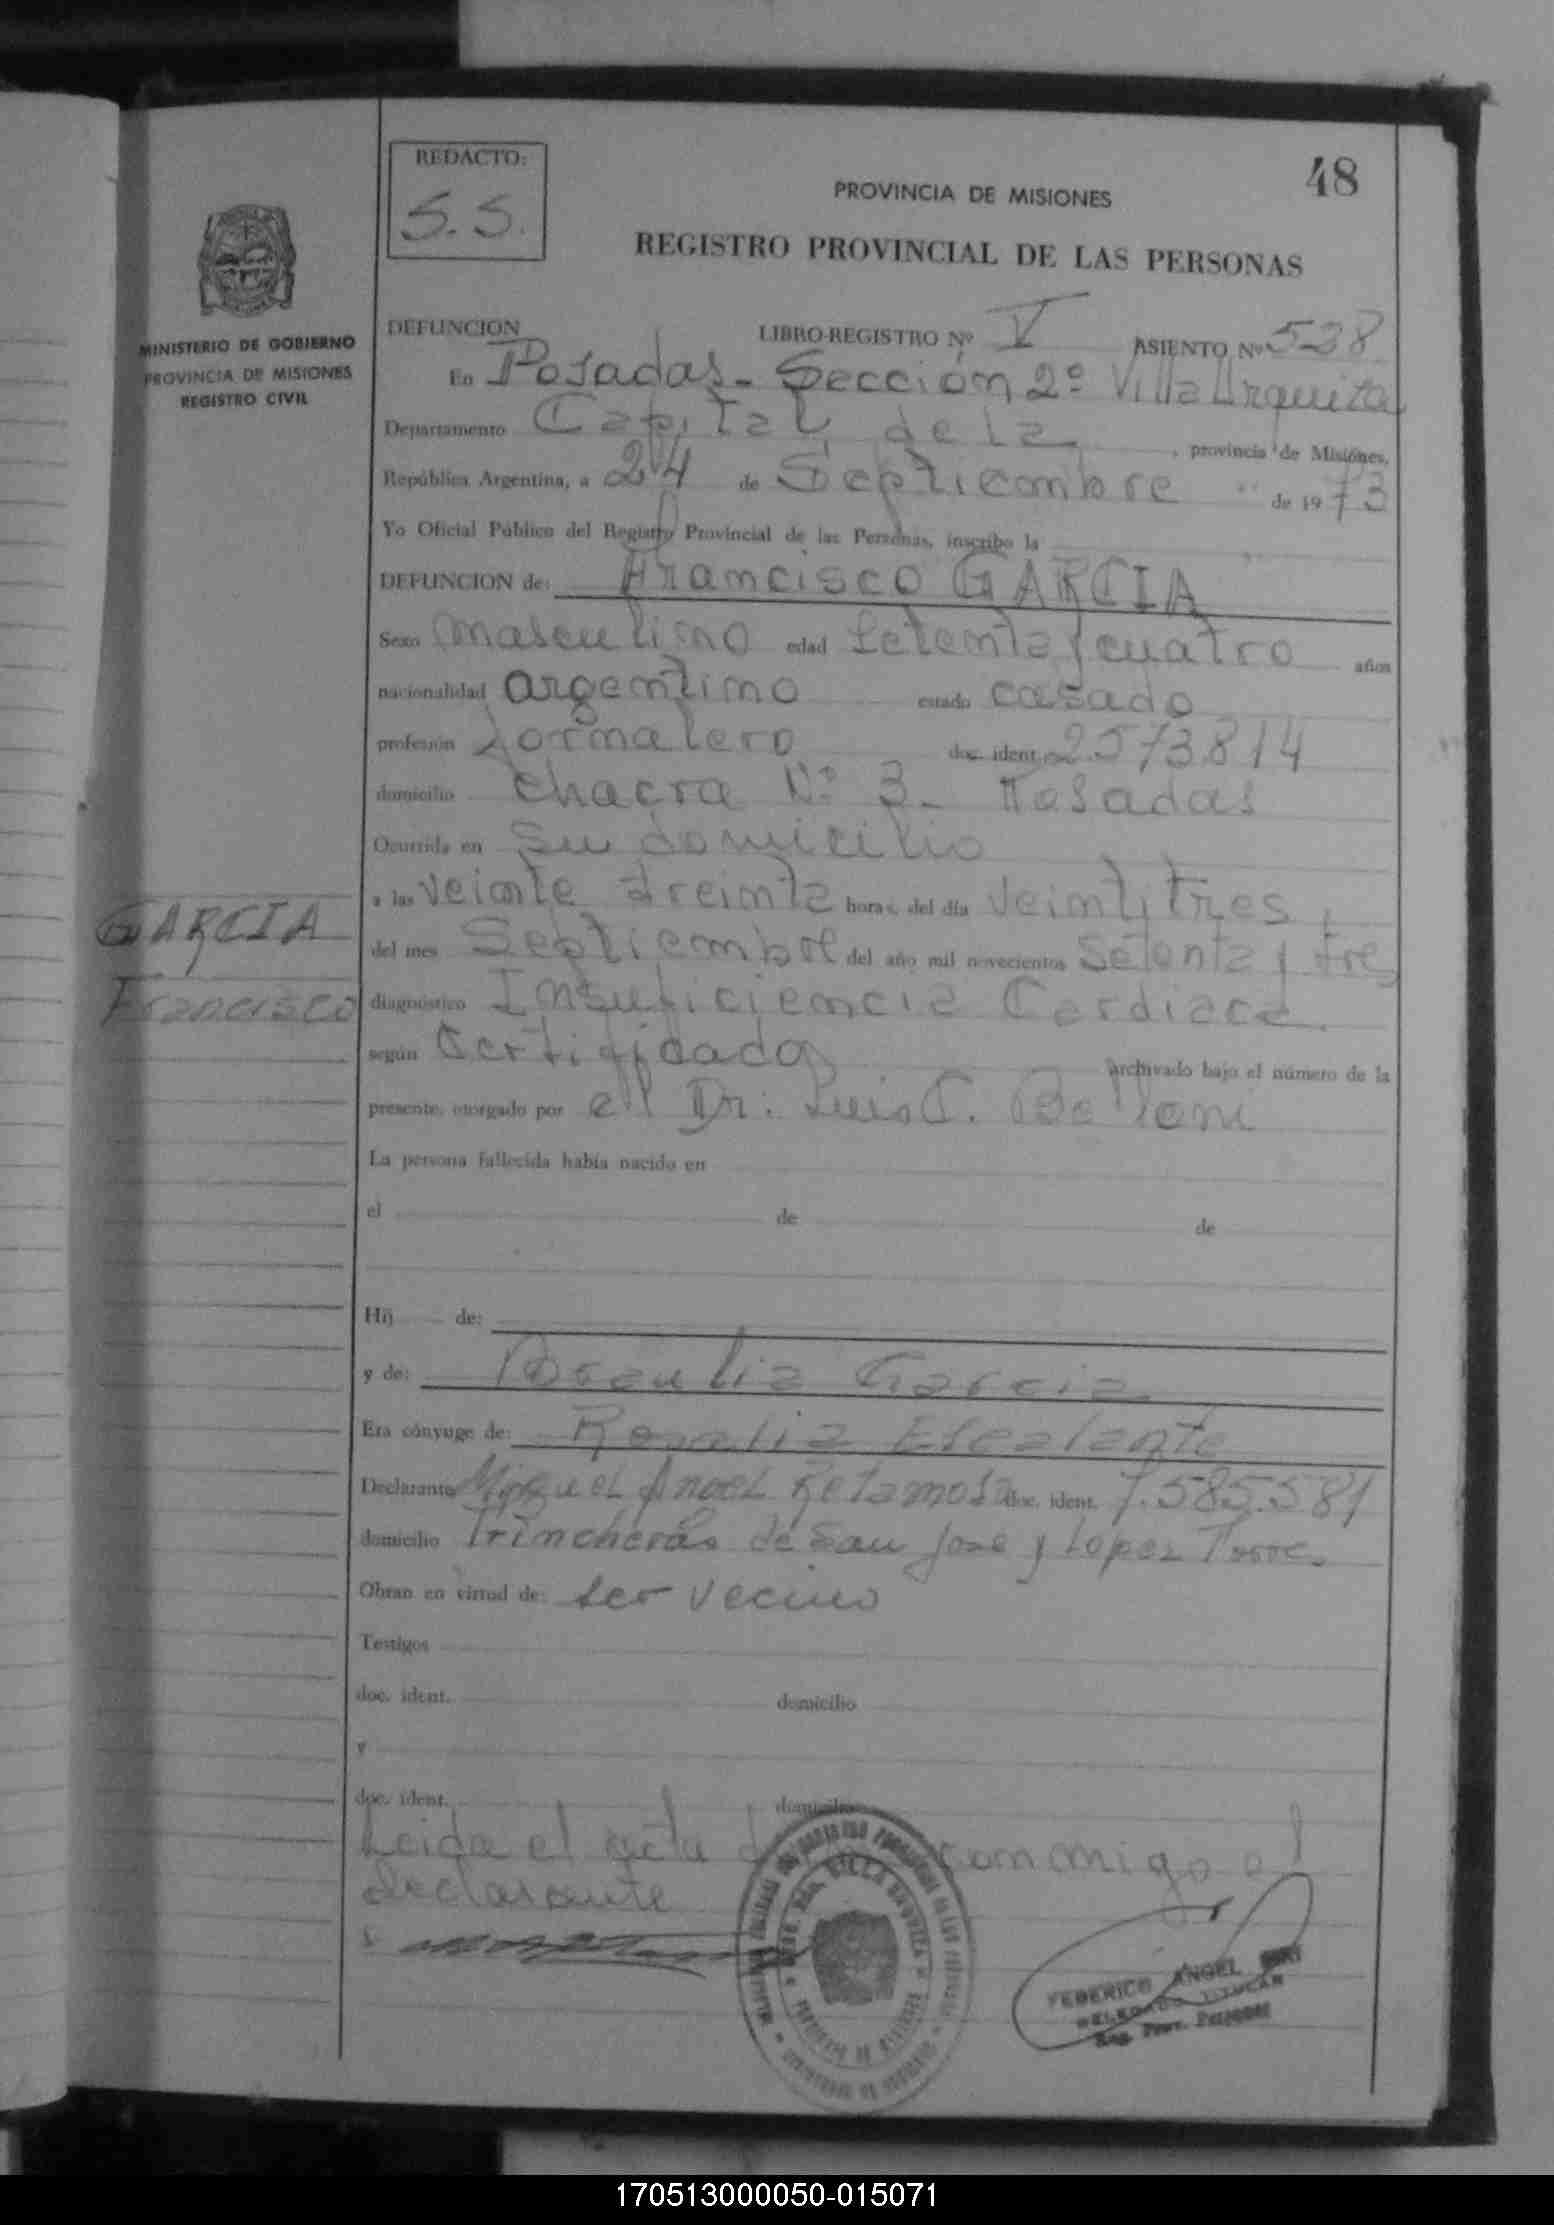 REDACTO:
S. S.
48
PROVINCIA DE MISIONES
REGISTRO PROVINCIAL DE LAS PERSONAS
MINISTERIO DE GOBIERNO
PROVINCIA DE MISIONES
REGISTRO CIVIL
DEFUNCION LIBRO-REGISTRO Nº V ASIENTO Nº 538
En Posadas - Sección 2º Villa Urquiza
Departamento Capital de la , provincia de Misiones,
República Argentina, a 24 de Septiembre de 1973
Yo Oficial Público del Registro Provincial de las Personas, inscribo la
DEFUNCION de: Francisco GARCIA
Sexo masculino edad Setenta y cuatro años
nacionalidad argentino estado casado
profesión Jornalero doc. ident. 2573814
domicilio Chacra Nº 3 - Posadas
Ocurrida en su domicilio
a las Veinte treinta horas, del día Veintitres,
GARCIA
Francisco
del mes Septiembre del año mil novecientos Setenta y tres
diagnóstico Insuficiencia Cardiaca.
según Certificado archivado bajo el número de la
presente, otorgado por el Dr. Luis C. Belloni
La persona fallecida había nacido en
el de de
Hij de:
y de: García
Era cónyuge de: Rosalia Escalante
Declarante Miguel Angel Retamosa doc. ident. 7.585.581
domicilio Trincheras de San José y Lopez Torre.
Obran en virtud de: ser vecino
Testigos
doc. ident. domicilio
y
doc. ident. domicilio
Leida el acta conmigo el
declarante
VILLA URQUIZA
FEDERICO ANGEL
DELEGADO TITULAR
Reg. Prov. Personas
170513000050-015071